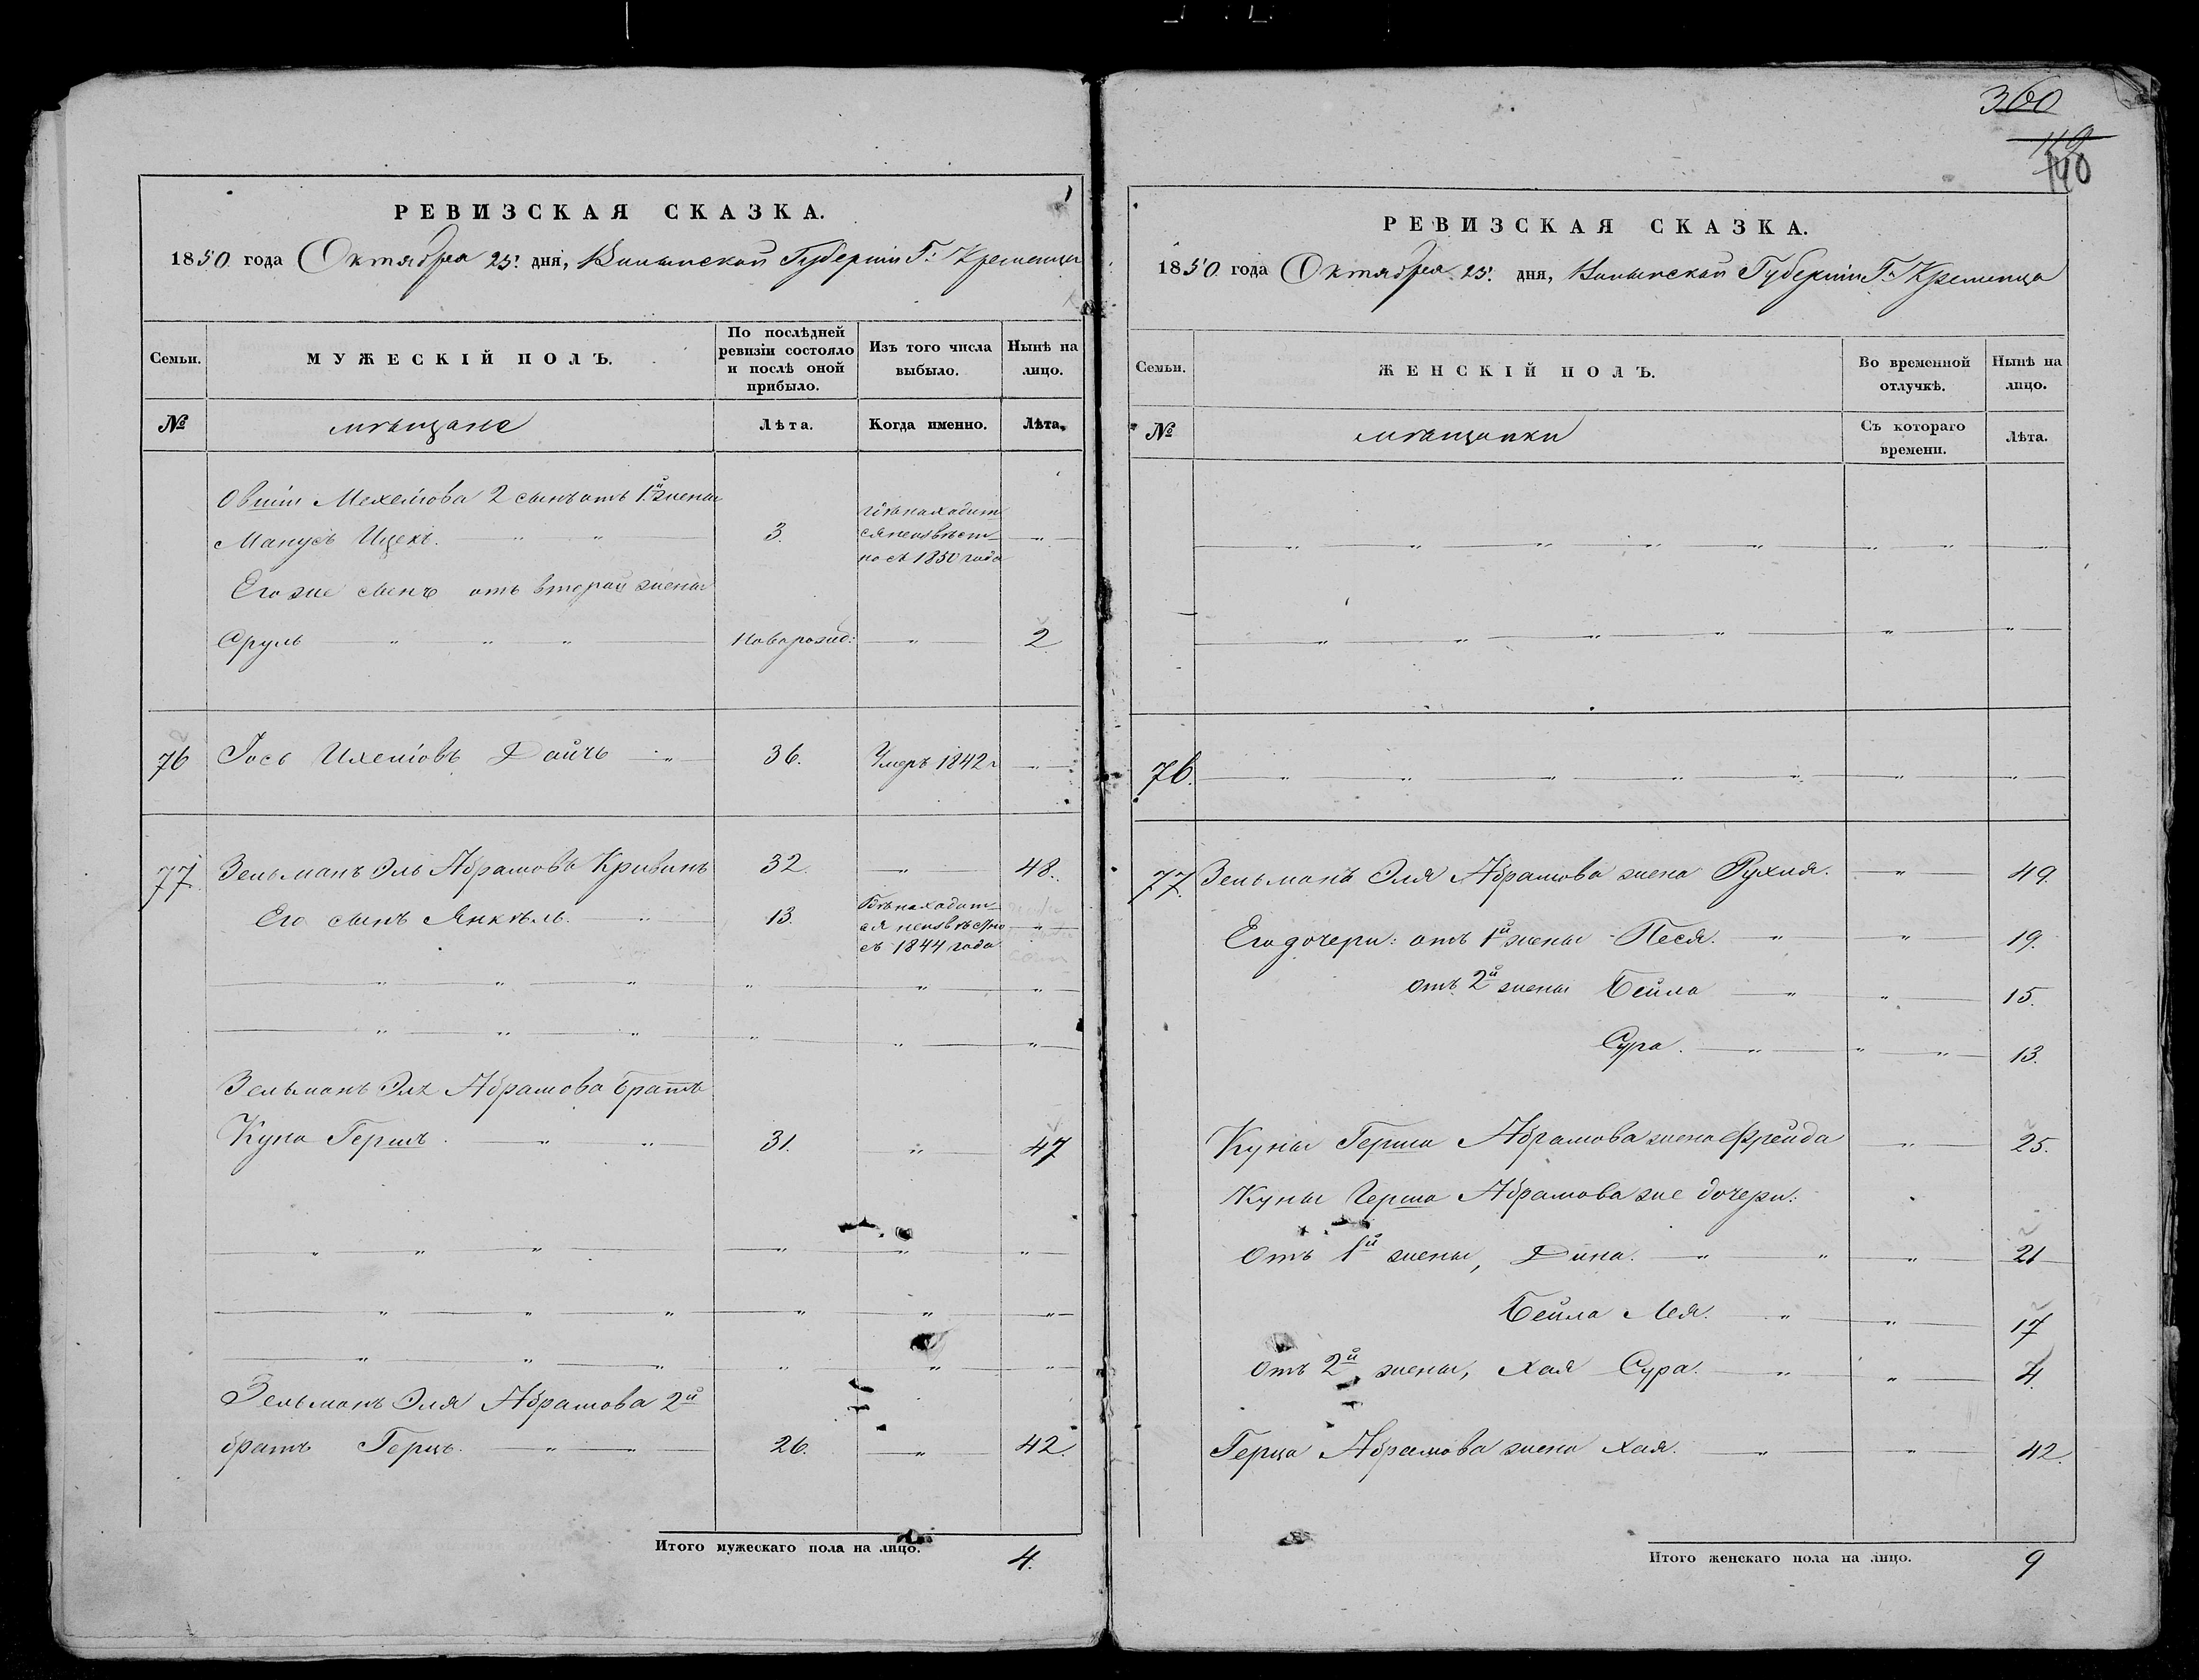 РЕВИЗСКАЯ СКАЗКА.
1850 года Октября 25. дня, Волынской Губерніи Г: Кременца
Семьи. МУЖЕСКІЙ ПОЛЪ. По послѣдней ревизіи состояло и послѣ оной прибыло. Изъ того числа выбыло. Нынѣ на лицо.
№ мѣщане Лѣта. Когда именно. Лѣта.
Овшіи 2 сынъ отъ 1й жены
Манусъ Ицекъ. 3. гдѣ находит
ся неизвѣст
но съ 1850 года
Его же сынъ отъ второй жены
Сруль Новорожд: 2
76 Іось Дайчъ 36. Умеръ 1842 г
77 Зельманъ Эль Абрамовъ Кривинъ 32. 48.
Его сынъ Янкель. 13. Гдѣ находит
ся неизвѣстно
съ 1844 года
Зельманъ Эля Абрамова братъ
Куна Гершъ. 31. 47
Зельманъ Эля Абрамова 2й
братъ Герцъ. 26. 42.
Итого мужескаго пола на лицо. 4.
360
119
140
РЕВИЗСКАЯ СКАЗКА.
1850 года Октября 25. дня, Волынской Губерніи Г. Кременца
Семьи. ЖЕНСКІЙ ПОЛЪ. Во временной отлучкѣ. Нынѣ на лицо.
№ мѣщанки Съ котораго времени. Лѣта.
76.
77. Зельманъ Эля Абрамова жена Рухля. 49.
Его дочери: отъ 1й жены Песя. 19.
отъ 2й жены Бейла 15.
Сура. 13.
Куны Герша Абрамова жена Фрейда 25.
Куны Герша Абрамова же дочери:
Отъ 1й жены, Дина. 21
Бейла Лея. 17
отъ 2й жены, Хая Сура. 4.
Герца Абрамова жена Хая. 42.
Итого женскаго пола на лицо. 9